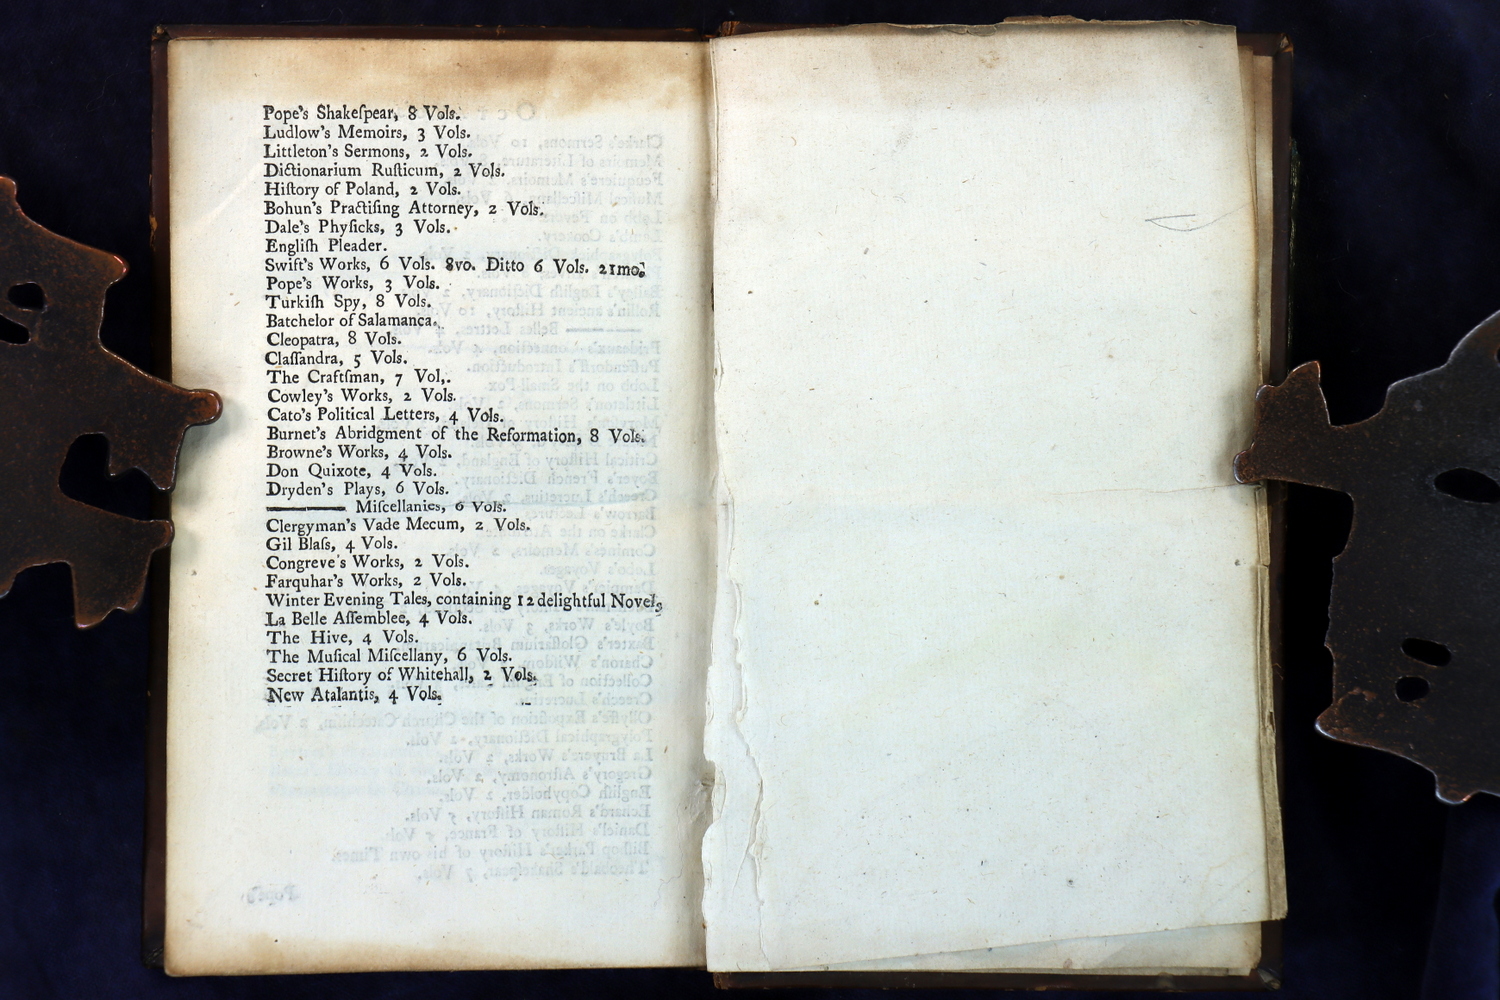 Pope's Shakeſpear, 8 Vols.
Ludlow's Memoirs, 3 Vols.
Littleton's Sermons, 2 Vols.
Dictionarium Ruſticum, 2 Vols.
Hiſtory of Poland, 2 Vols.
Bohun's Practiſing Attorney, 2 Vols.
Dale's Phyſicks, 3 Vols.
Engliſh Pleader.
Swift's Works, 6 Vols. 8vo. Ditto 6 Vols. 21mo.
Pope's Works, 3 Vols.
Turkiſh Spy, 8 Vols.
Batchelor of Salamanca.
Cleopatra, 8 Vols.
Claſſandra, 5 Vols.
The Craftſman, 7 Vol,.
Cowley's Works, 2 Vols.
Cato's Political Letters, 4 Vols.
Burnet's Abridgment of the Reformation, 8 Vols.
Browne's Works, 4 Vols.
Don Quixote, 4 Vols.
Dryden's Plays, 6 Vols.
——— Miſcellanies, 6 Vols.
Clergyman's Vade Mecum, 2 Vols.
Gil Blaſs, 4 Vols.
Congreve's Works, 2 Vols.
Farquhar's Works, 2 Vols.
Winter Evening Tales, containing 12 delightful Novels
La Belle Aſſemblee, 4 Vols.
The Hive, 4 Vols.
The Muſical Miſcellany, 6 Vols.
Secret Hiſtory of Whitehall, 2 Vols.
New Atalantis, 4 Vols.